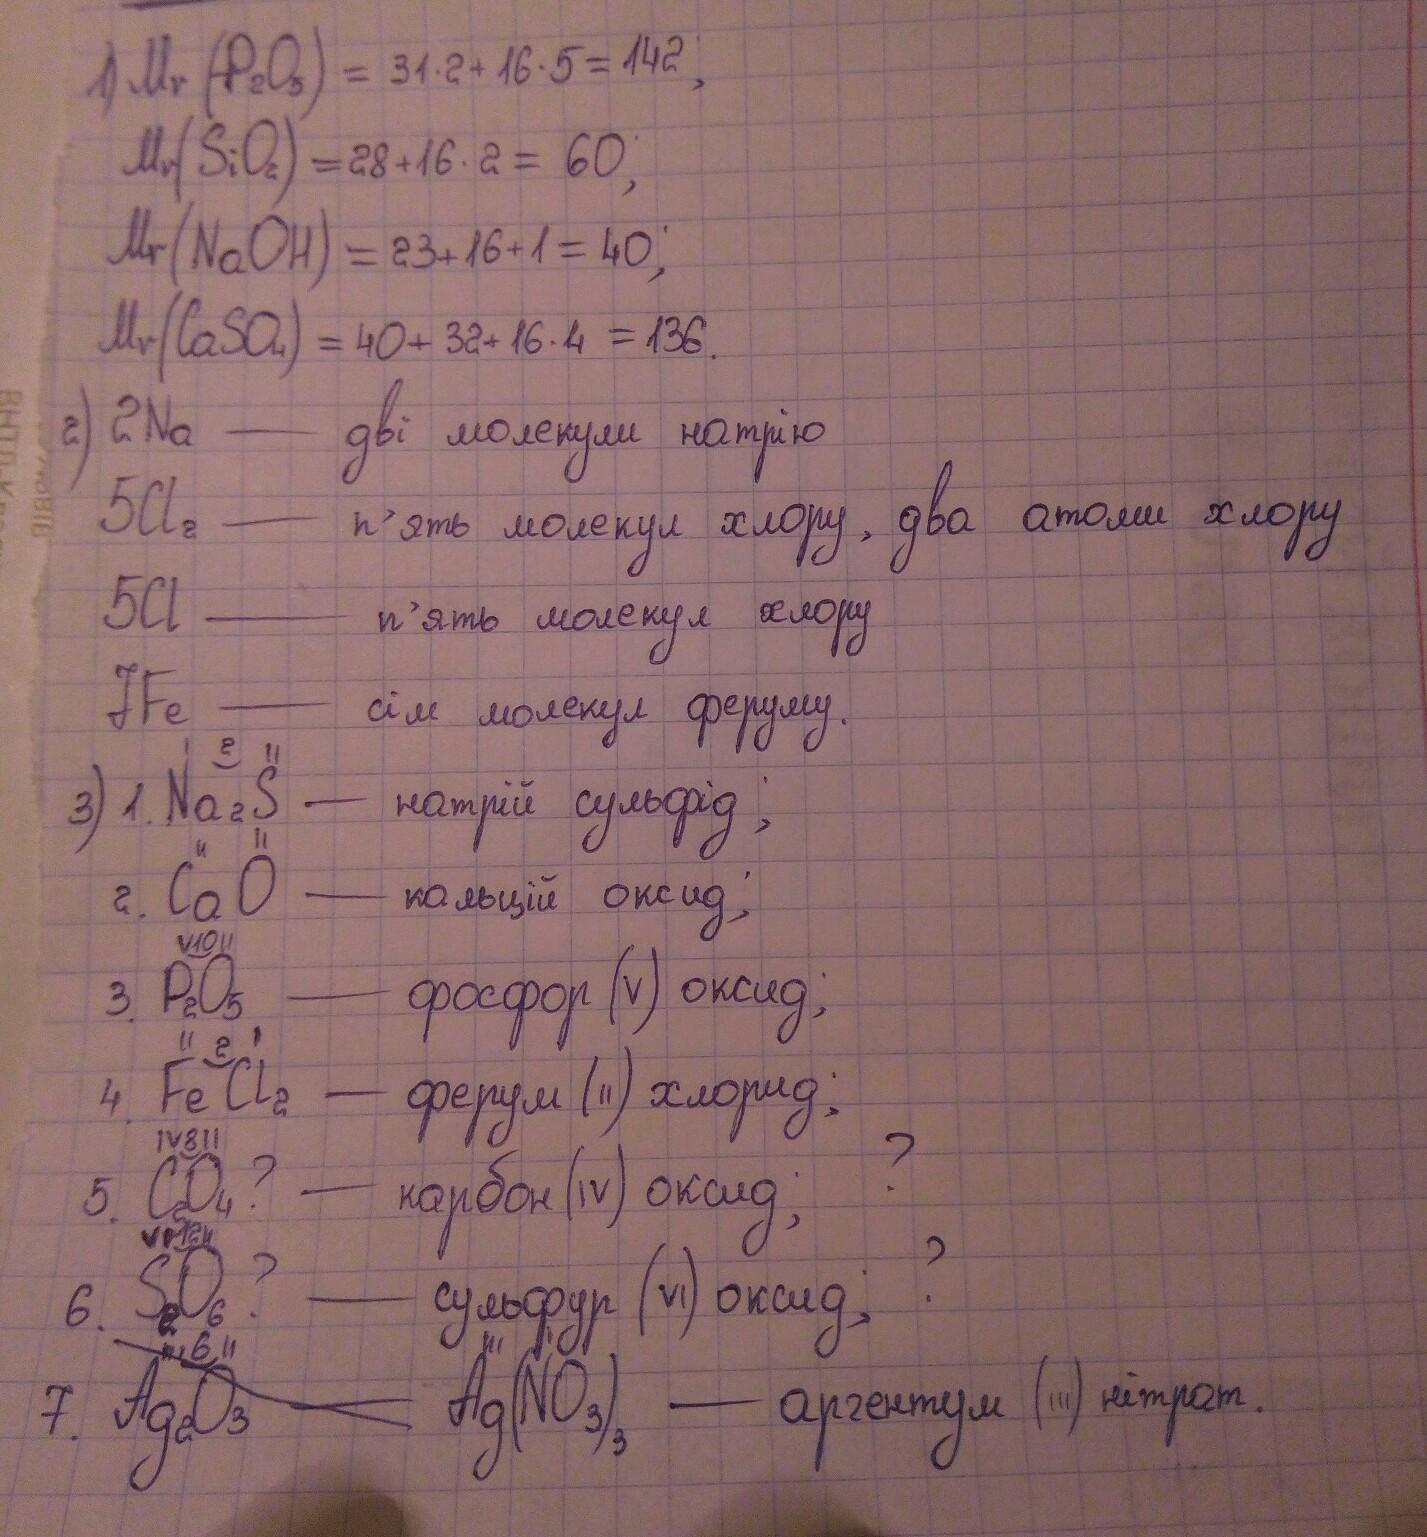 1) Mr(P₂O₅) = 31·2+16·5=142;
Mr(SiO₂) =28+16·2= 60;
Mr(NaOH) = 23+16+1=40;
Mr(CaSO₄) = 40+32+16·4 =136.
2) 2Na — дві молекули натрію
5Cl₂ — п'ять молекул хлору, два атоми хлору
5Cl — п'ять молекул хлору
7Fe — сім молекул феруму.
I 2 II
3) 1. Na₂S — натрій сульфід;
II II
2. CaO — кальцій оксид;
V 10 II
3. P₂O₅ — фосфор (V) оксид;
II 2 I
4. FeCl₂ — ферум (II) хлорид;
IV 8 II
5. C₂O₄? — карбон (IV) оксид; ?
VI 12 II
6. S₂O₆? — сульфур (VI) оксид; ?
III 6 II III I
7. Ag₂O₃ — Ag(NO₃)₃ — аргентум (III) нітрат.